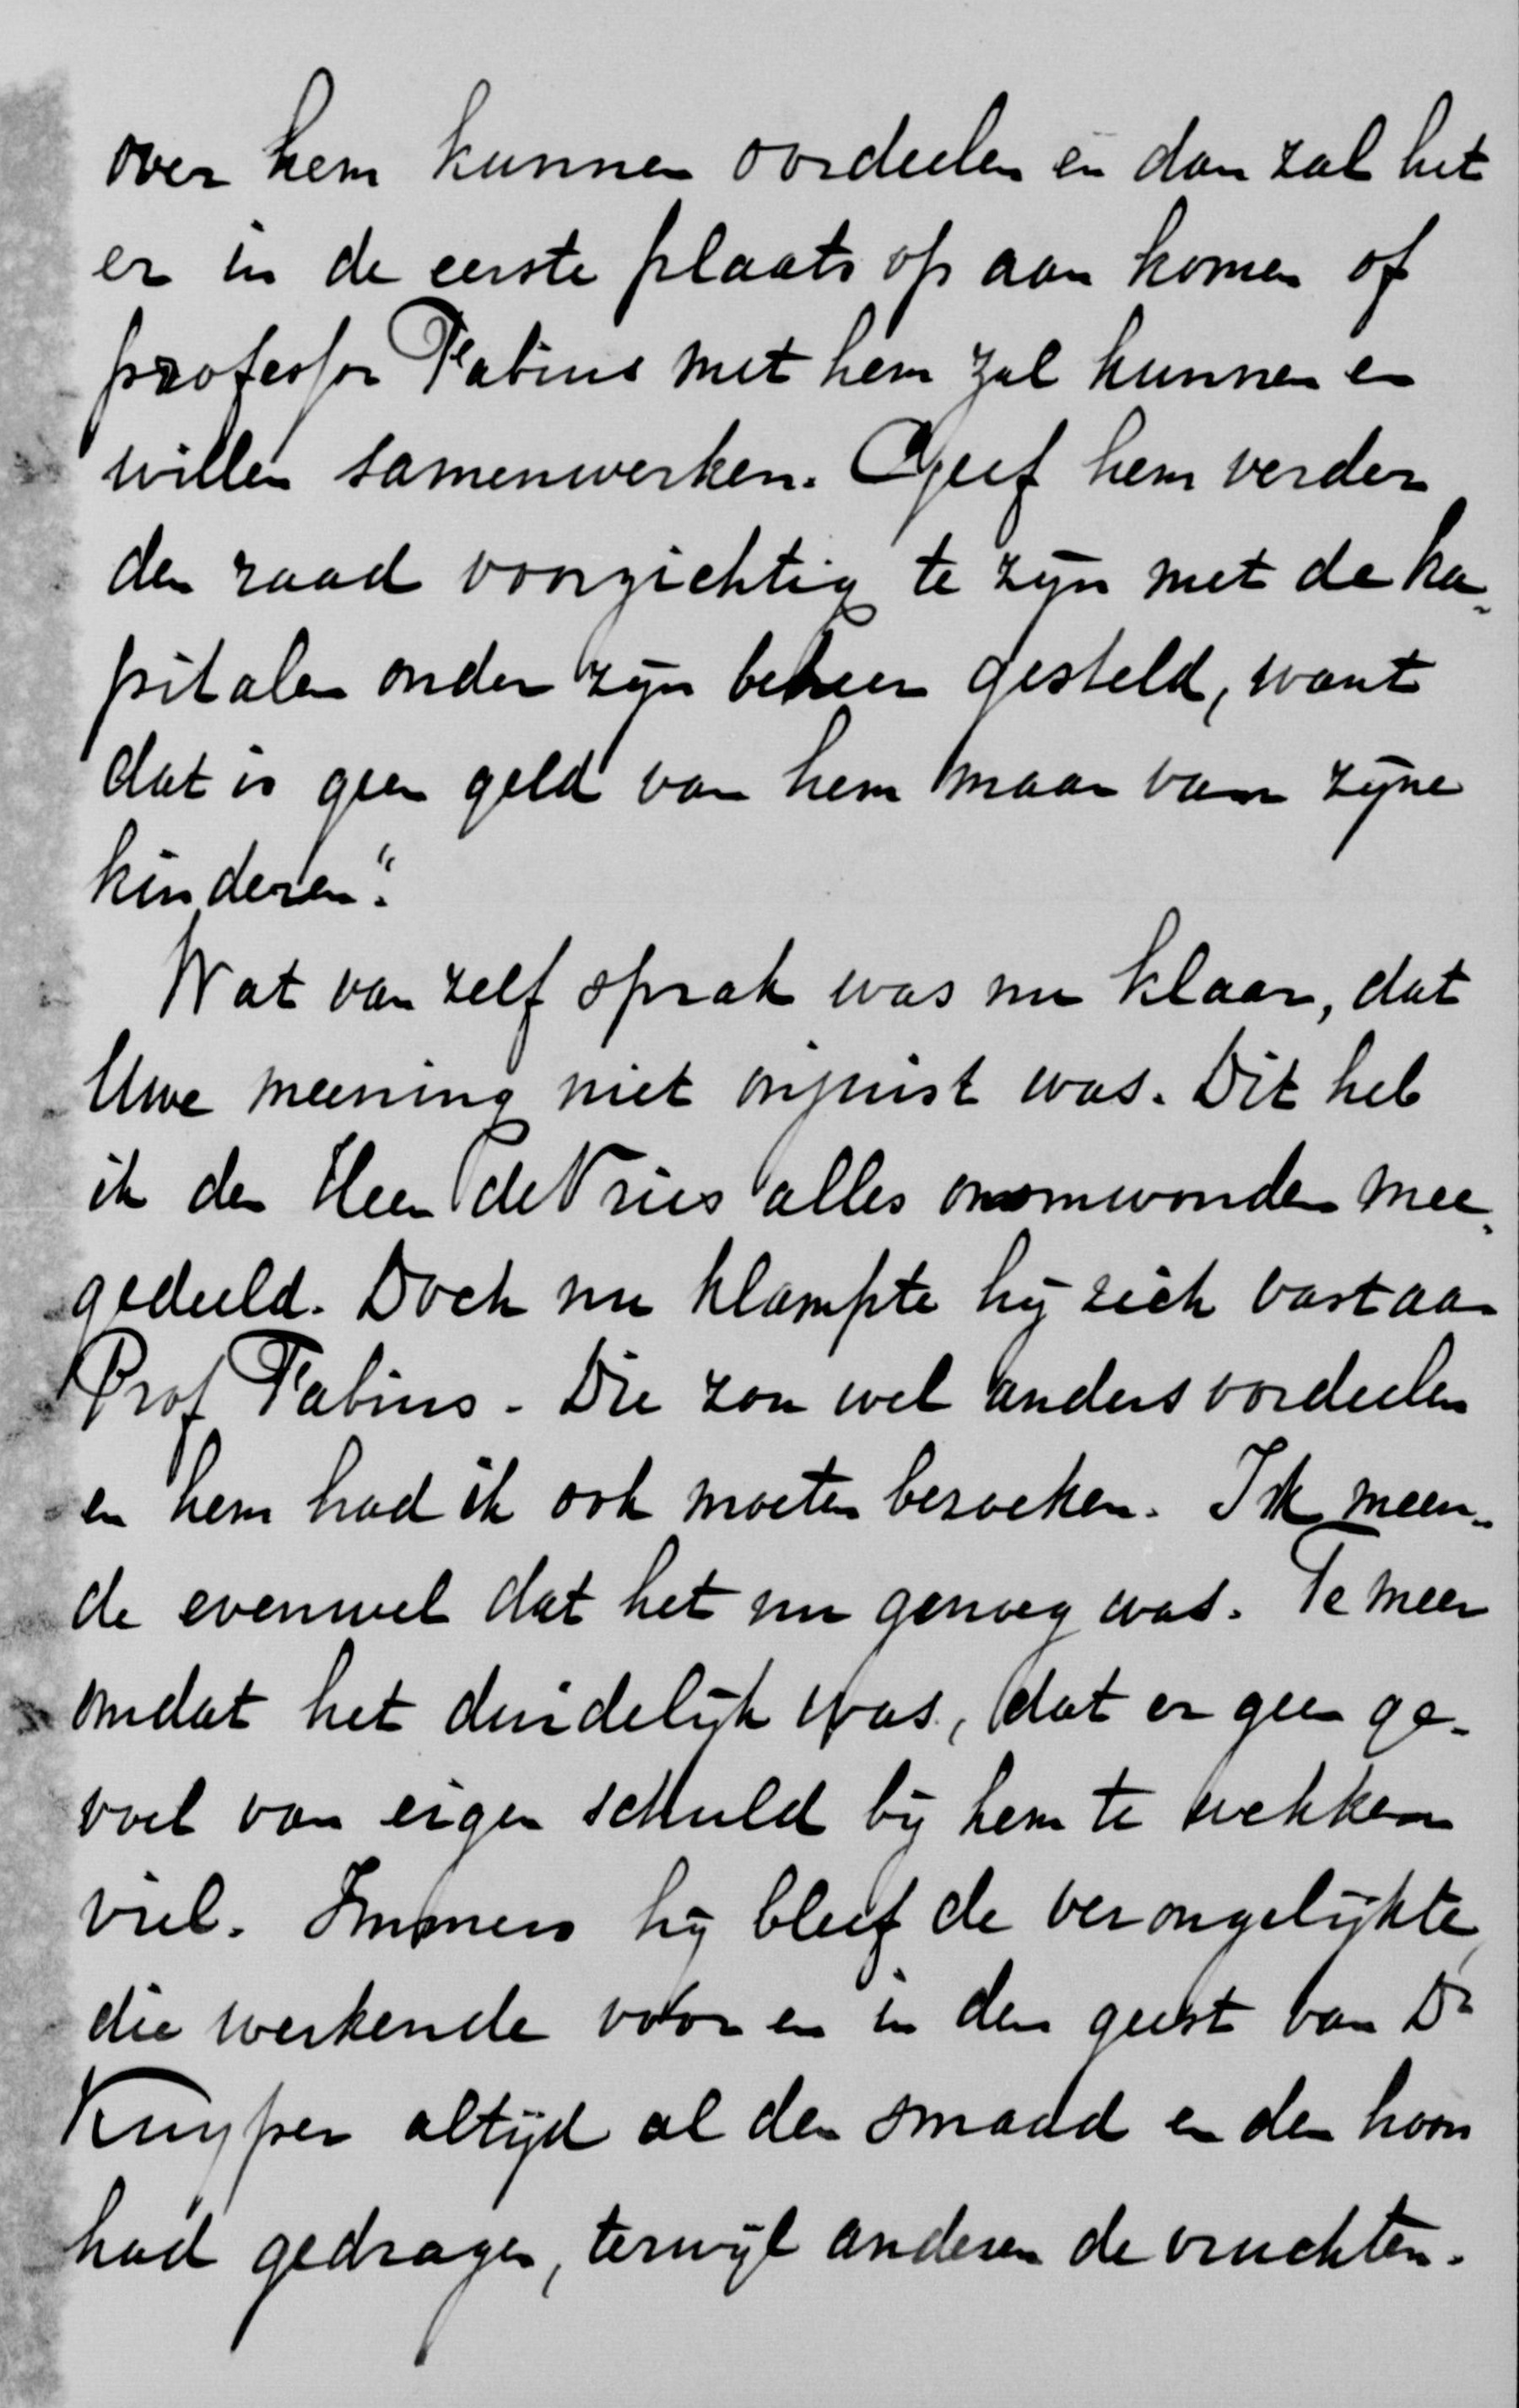 over hem kunnen oordeelen en dan zal het
er in de eerste plaats op aan komen of
professor Fabius met hem zal kunnen en
willen samenwerken. Geef hem verder
den raad voorzichtig te zijn met de ka-
pitalen onder zijn beheer gesteld, want
dat is geen geld van hem maar van zijne
kinderen".
Wat van zelf sprak was nu klaar, dat
Uwe meening niet onjuist was. Dit heb
ik den Heer de Vries alles onomwonden mee-
gedeeld. Doch nu klampte hij zich vast aan
Prof Fabius. Die zou wel anders oordeelen
en hem had ik ook moeten bezoeken. Ik meen-
de evenwel dat het nu genoeg was. Te meer
omdat het duidelijk was, dat er geen ge-
voel van eigen schuld bij hem te wekken
viel. Immers hij bleef de verongelijkte,
die werkende voor en in den geest van Dr
Kuyper altijd al den smaad en den hoon
had gedragen, terwijl anderen de vruchten.